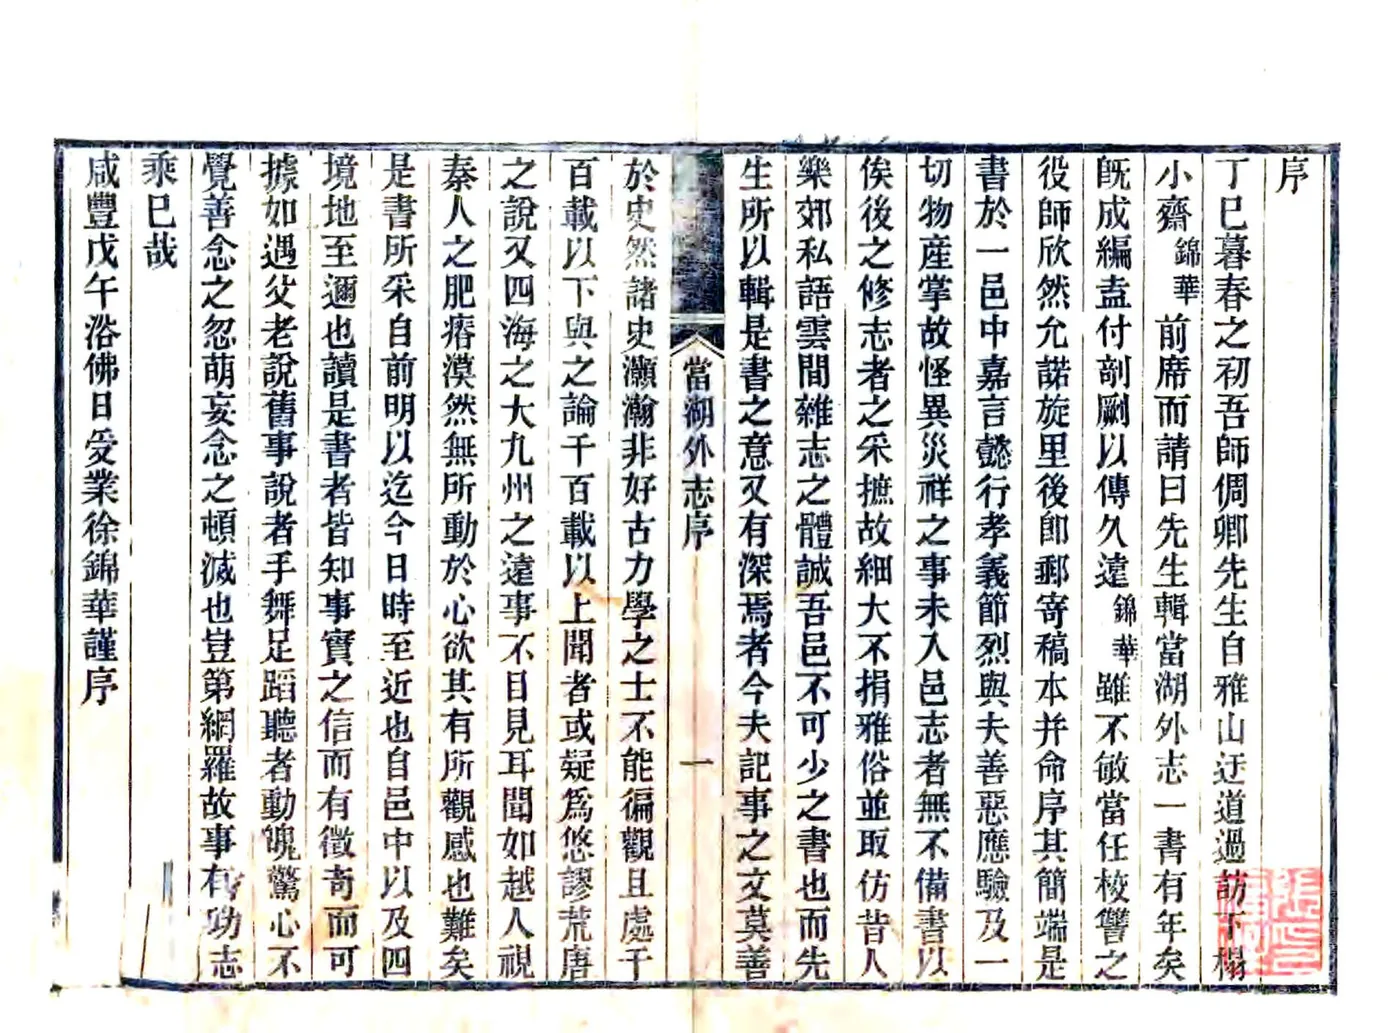 序
丁巳暮春之初吾師倜卿先生自雅山迂道過訪下榻
小齋錦華前席而請曰先生輯當湖外志一書有年矣
旣成編盍付剞劂以傳久遠錦華雖不敏當任校讐之
役師欣然允諾旋里後卽郵寄稿本并命序其簡端是
書於一邑中嘉言懿行孝義節烈與夫善惡應驗及一
切物產掌故怪異災祥之事未入邑志者無不備書以
俟後之修志者之采摭故細大不捐雅俗並取仿昔人
樂郊私語雲間雜志之體誠吾邑不可少之書也而先
生所以輯是書之意又有深焉者今夫記事之文莫善
當湖外志序
一
於史然諸史灝瀚非好古力學之士不能徧觀且處千
百載以下與之論千百載以上聞者或疑爲悠謬荒唐
之說又四海之大九州之遠事不目見耳聞如越人視
秦人之肥瘠漠然無所動於心欲其有所觀感也難矣
是書所采自前明以迄今日時至近也自邑中以及四
境地至邇也讀是書者皆知事實之信而有徵奇而可
據如遇父老說舊事說者手舞足蹈聽者動魄驚心不
覺善念之忽萌妄念之頓滅也豈第網羅故事有功志
乘已哉
咸豐戊午浴佛日受業徐錦華謹序